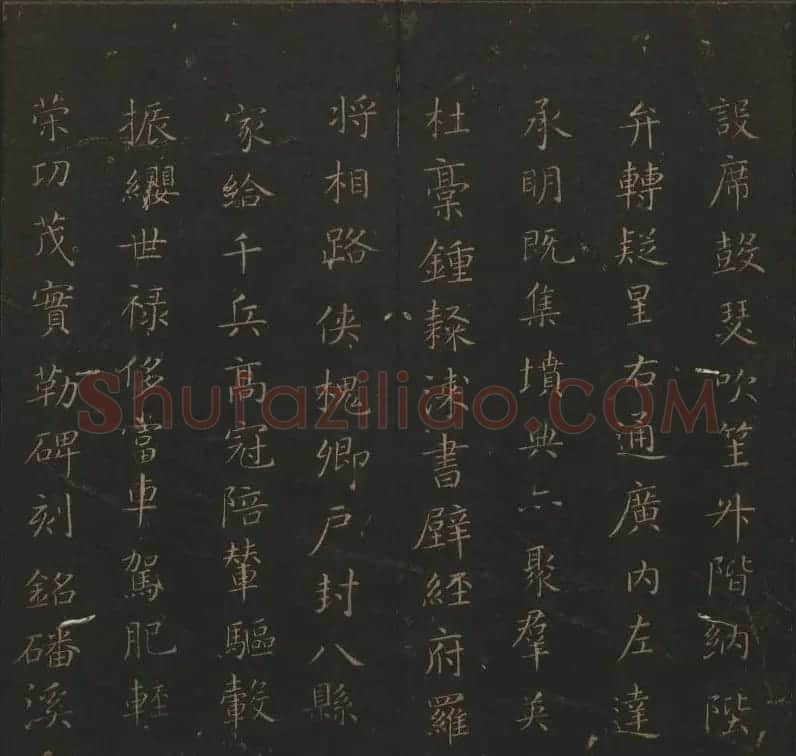 設席鼓瑟吹笙升階納陛
弁轉疑星右通廣内左達
承明既集墳典亦聚羣英
杜稾鍾隸漆書壁經府羅
将相路侠槐卿户封八縣
家給千兵高冠陪輦驅轂
振纓世禄侈富車駕肥輕
荣功茂實勒碑刻銘磻溪
Shufazilido.COM